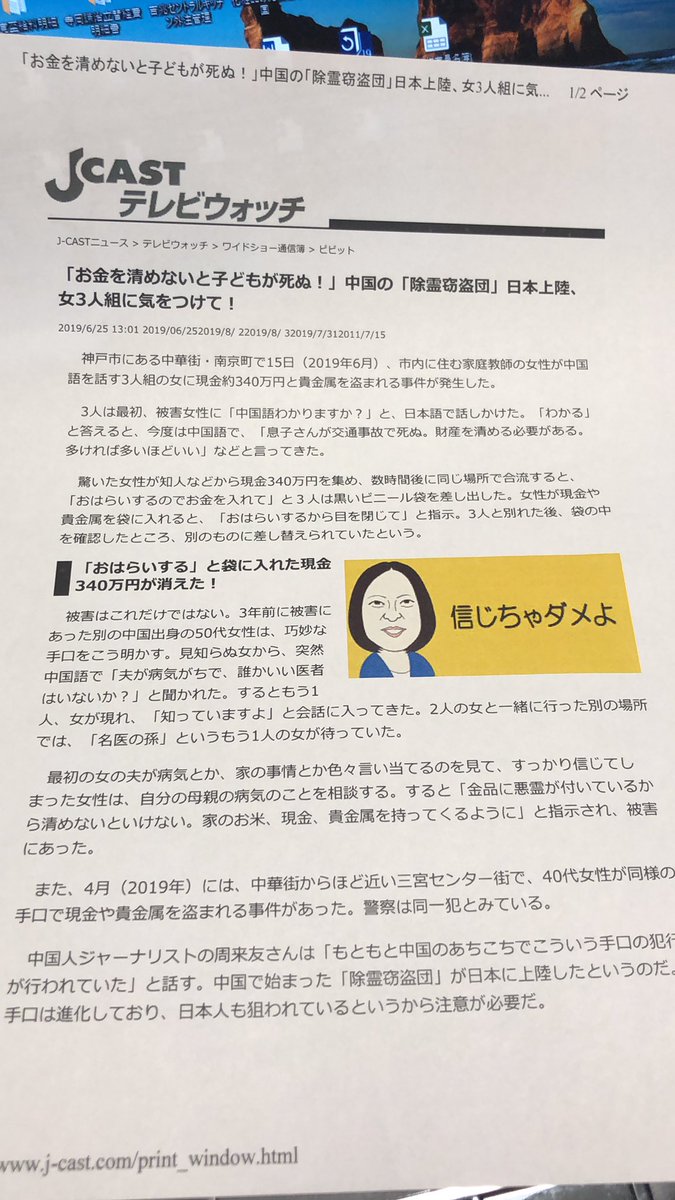 「お金を清めないと子どもが死ぬ！」中国の「除霊窃盗団」日本上陸、女3人組に気... 1/2 ページ
J-CAST
テレビウォッチ
J-CASTニュース > テレビウォッチ > ワイドショー通信簿 > ビビット
「お金を清めないと子どもが死ぬ！」中国の「除霊窃盗団」日本上陸、
女3人組に気をつけて！
2019/6/25 13:01 2019/06/252019/8/ 22019/8/ 32019/7/312011/7/15
神戸市にある中華街・南京町で15日（2019年6月）、市内に住む家庭教師の女性が中国
語を話す3人組の女に現金約340万円と貴金属を盗まれる事件が発生した。
3人は最初、被害女性に「中国語わかりますか？」と、日本語で話しかけた。「わかる」
と答えると、今度は中国語で、「息子さんが交通事故で死ぬ。財産を清める必要がある。
多ければ多いほどいい」などと言ってきた。
驚いた女性が知人などから現金340万円を集め、数時間後に同じ場所で合流すると、
「おはらいするのでお金を入れて」と３人は黒いビニール袋を差し出した。女性が現金や
貴金属を袋に入れると、「おはらいするから目を閉じて」と指示。3人と別れた後、袋の中
を確認したところ、別のものに差し替えられていたという。
「おはらいする」と袋に入れた現金
340万円が消えた！
信じちゃダメよ
被害はこれだけではない。3年前に被害に
あった別の中国出身の50代女性は、巧妙な
手口をこう明かす。見知らぬ女から、突然
中国語で「夫が病気がちで、誰かいい医者
はいないか？」と聞かれた。するともう1
人、女が現れ、「知っていますよ」と会話に入ってきた。2人の女と一緒に行った別の場所
では、「名医の孫」というもう1人の女が待っていた。
最初の女の夫が病気とか、家の事情とか色々言い当てるのを見て、すっかり信じてし
まった女性は、自分の母親の病気のことを相談する。すると「金品に悪霊が付いているか
ら清めないといけない。家のお米、現金、貴金属を持ってくるように」と指示され、被害
にあった。
また、4月（2019年）には、中華街からほど近い三宮センター街で、40代女性が同様の
手口で現金や貴金属を盗まれる事件があった。警察は同一犯とみている。
中国人ジャーナリストの周来友さんは「もともと中国のあちこちでこういう手口の犯行
が行われていた」と話す。中国で始まった「除霊窃盗団」が日本に上陸したというのだ。
手口は進化しており、日本人も狙われているというから注意が必要だ。
www.j-cast.com/print_window.html